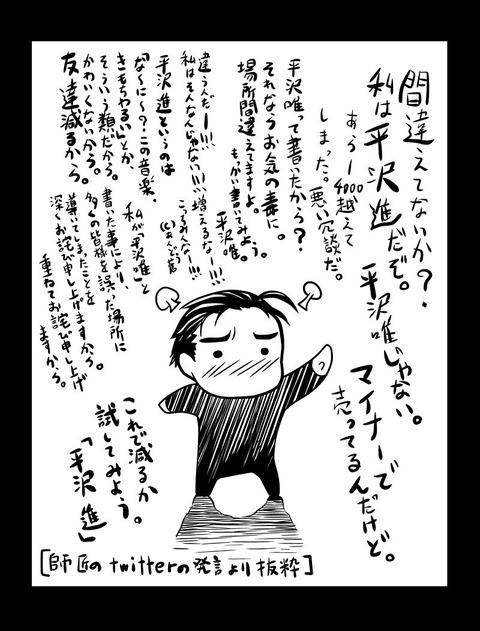 間違えてないか?.
私は平沢進だぞ。
平沢唯じゃない。
マイナーで
売ってるんだけど。
あうー4000越えて
しまった。悪い冗談だ。
平沢唯って書いたから?.
それならお気の毒に。
場所間違えてますよ。
もっかい書いてみよう。
平沢唯。
違うんだー!!!
私はそんなんじゃない!!!増えるなー!!!
こっちみんなー!!!
平沢進というのは
「な〜に〜?この音楽、
きもちわるい」とか、
そういう類だから。
かわいくないから。
友達減るから。
私が「平沢唯」と
書いた事により、
多くの皆様を誤った場所に
導いてしまったことを
深くお詫び申し上げますから。
重ねてお詫び申し上げ
ますから。
これで減るか
試してみよう。
「平沢進」
[師匠のtwitterの発言より抜粋]